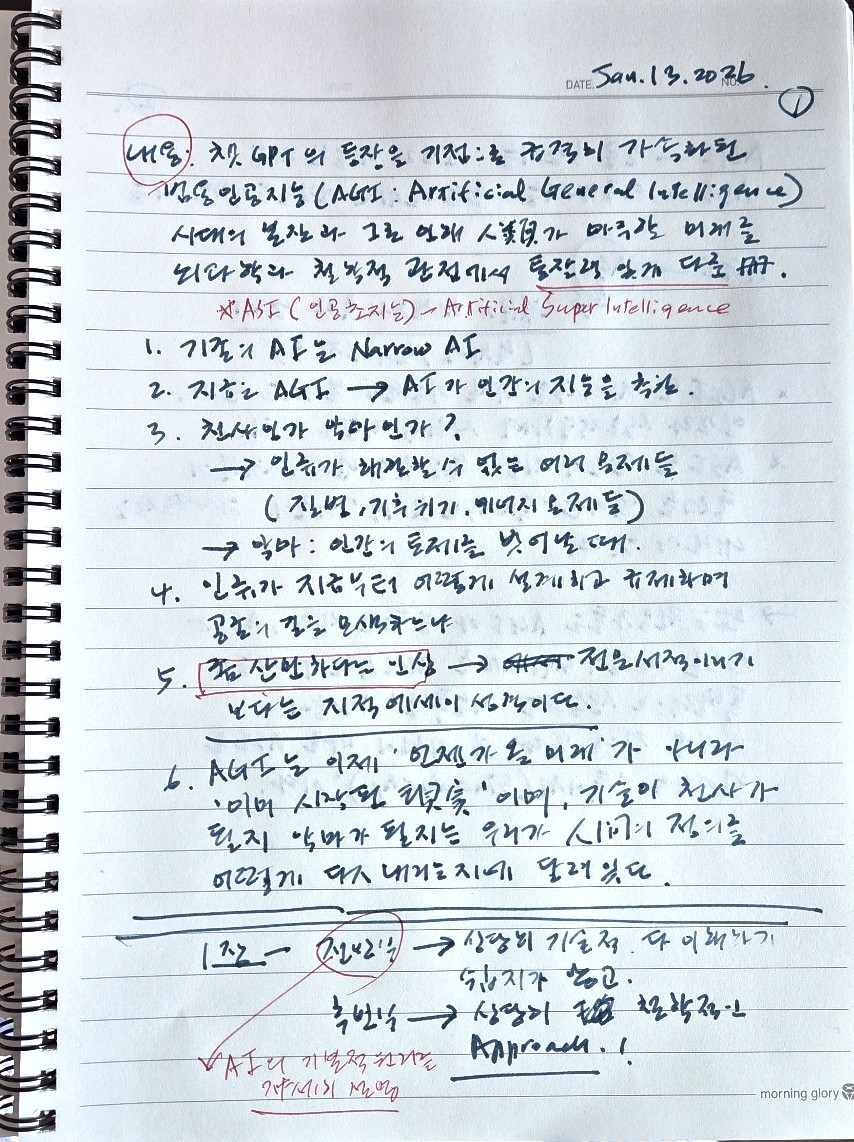 DATE. Jan. 13. 2026. NO.
①
내용: 챗 GPT의 등장을 기점으로 급격히 가속화된
범용인공지능(AGI: Artificial General Intelligence)
시대의 본질과 그로 인해 人類가 마주할 미래를
뇌과학과 철학적 관점에서 통찰력 있게 다룬 冊.
* ASI (인공초지능) - Artificial Super Intelligence
1. 기존의 AI는 Narrow AI
2. 지금은 AGI → AI가 인간의 지능을 추월.
3. 천사인가 악마인가?
→ 인류가 해결할 수 없는 여러 문제들
(질병, 기후위기, 에너지 문제들)
→ 악마: 인간의 통제를 벗어날 때.
4. 인류가 지금부터 어떻게 설계하고 규제하며
공존의 길을 모색하느냐
5. 좀 산만하다는 인상 → 전문서적이라기
보다는 지적 에세이 성격이다.
6. AGI는 이제 '언젠가 올 미래'가 아니라
'이미 시작된 現實'이며, 기술이 천사가
될지 악마가 될지는 우리가 人間의 정의를
어떻게 다시 내리는지에 달려있다.
1장 - 전반부 → 상당히 기술적. 다 이해하기
쉽지가 않고.
후반부 → 상당히 철학적인
Approach.!
AI의 기술적 원리를
자세히 설명
morning glory